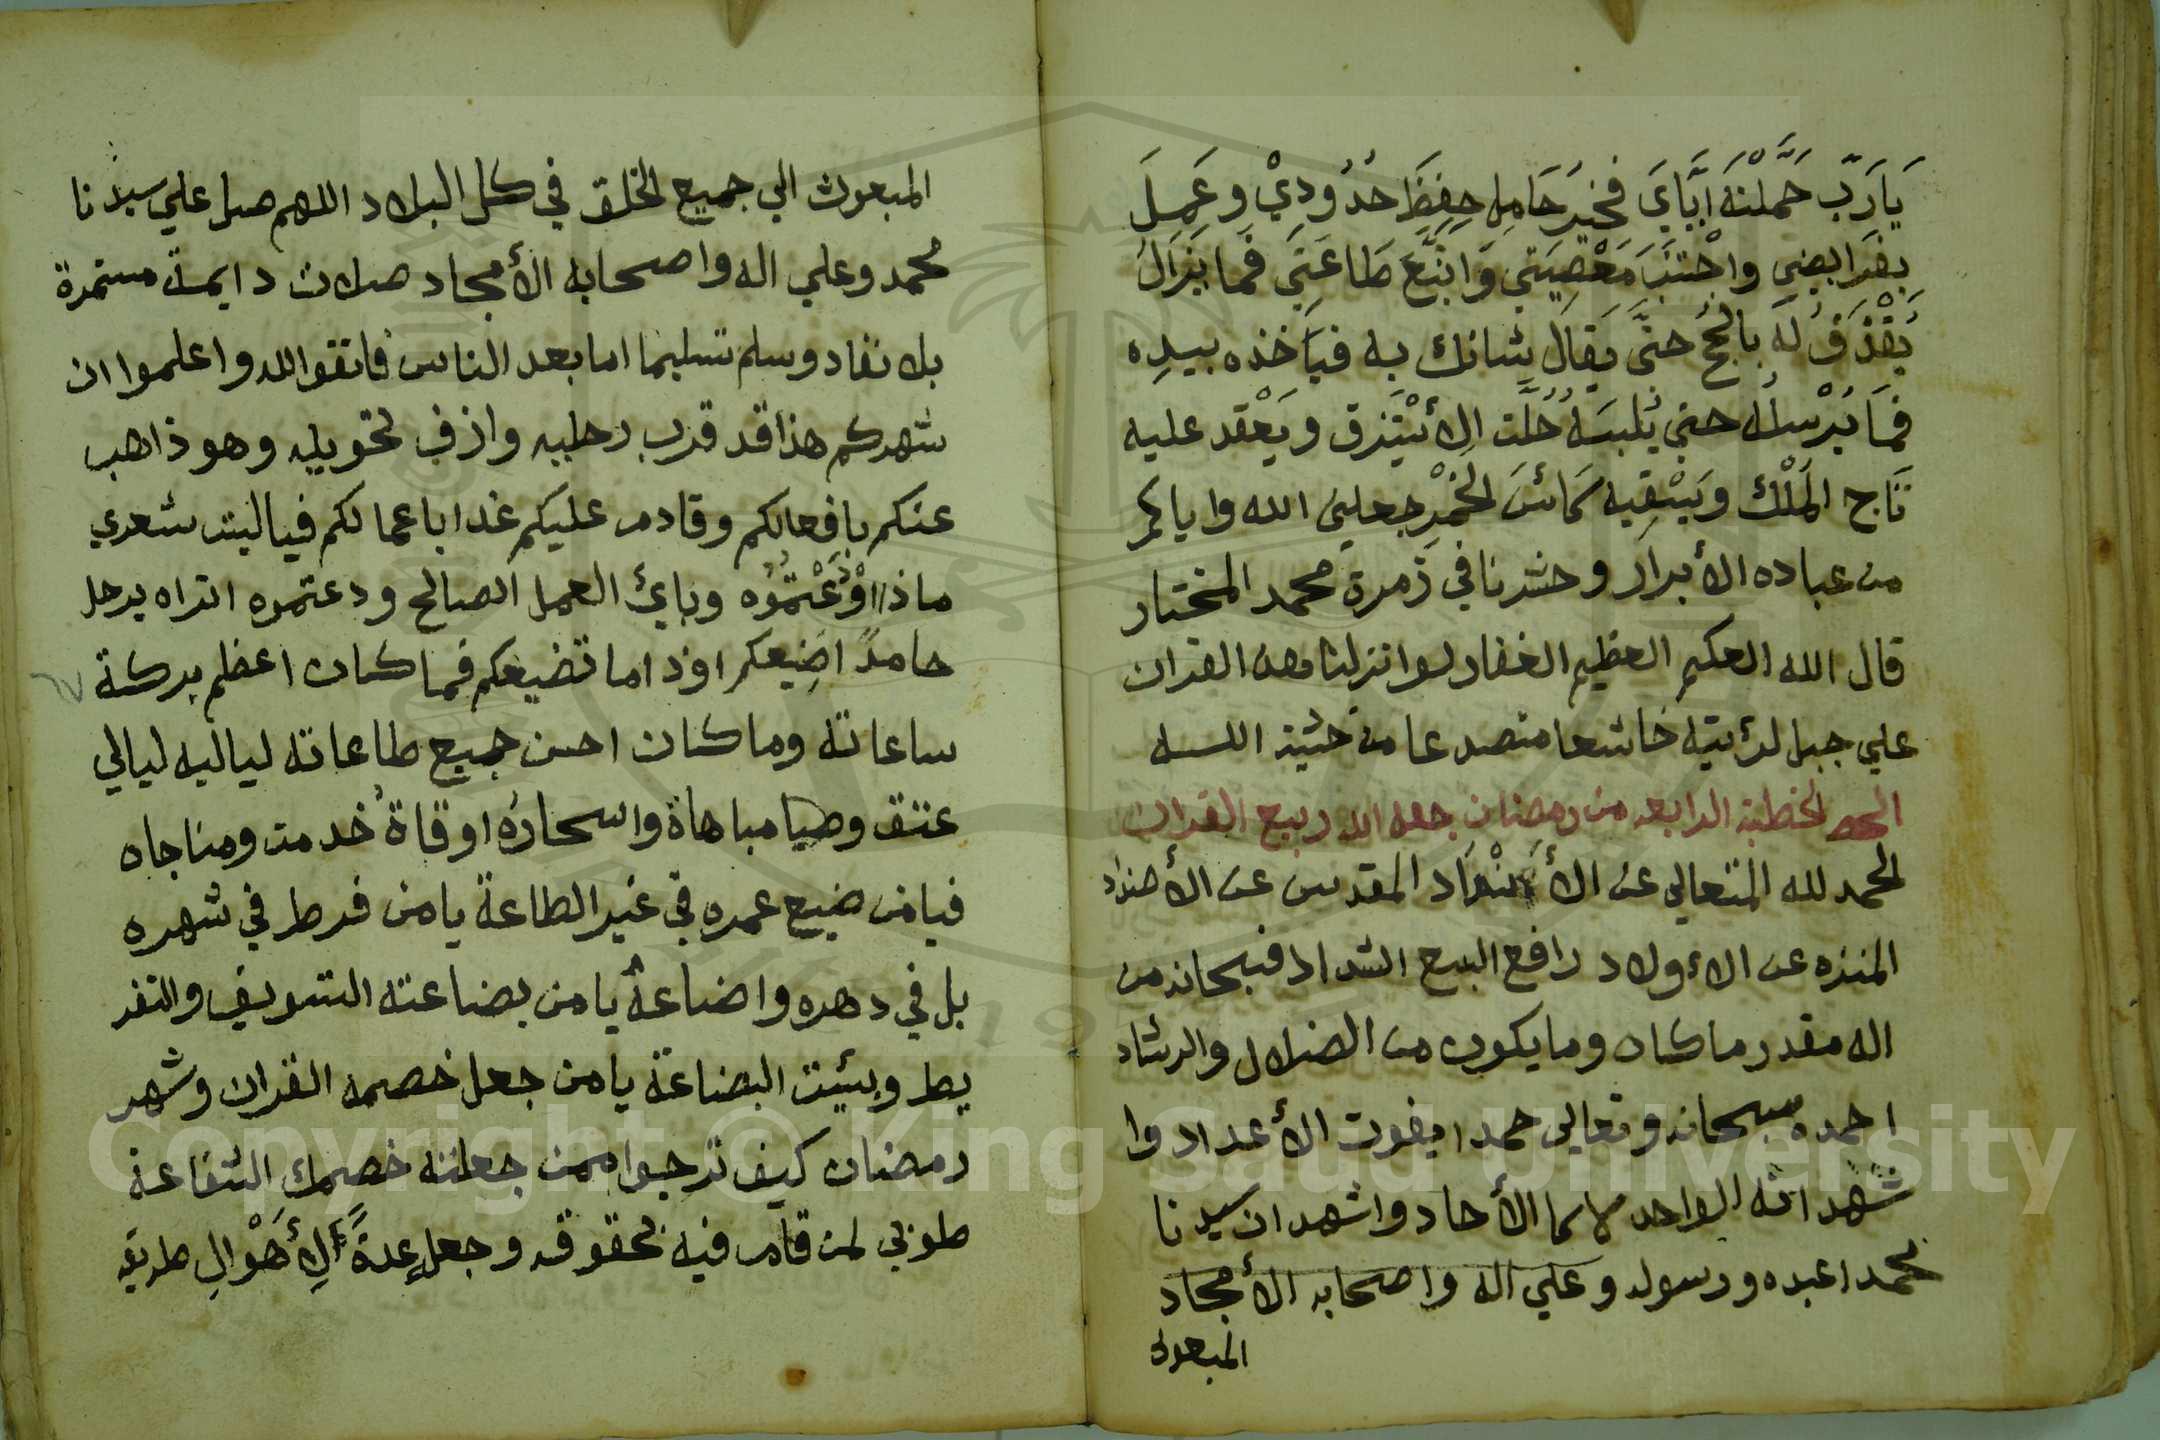 يَارَبِّ حَمَّلْتَهُ اِيَّايَ فخيرُ حَامِلِ حفِظَ حُدُودِيْ وعَمِلَ
بِفَرَايضِي واجْتَنَبَ مَعْصِيَتي وَاتَّبَعَ طَاعَتِي فَما يَزَالُ
يَقْذِفُ لَهُ بالحُجج حتَّى يُقالَ شانك به فيَأخذه بيدِه
فمَا يُرْسلُه حتي يُلبسَهُ حُلَّت الأسْتَبرَق ويَعْقد عليه
تَاج المَلْك ويَسْقِيه كَائسَ الخَمْرِ جعلني الله واياكم
من عباده الأبرار وحشرنا في زمرة محمد المختار
قال الله الحكيم العظيم الغفار لو انزلنا هذا القران
علي جبل لرئيته خاشعا متصدعا من خشية اللـه
الخطبة الرابعه من رمضان جعله الله ربيع القران
الحمد لله المتعالي عن الأنداد المقدس عن الأضداد
المنزه عن الأولاد رافع السبع الشداد فسبحانه من
اله مقدر ما كان وما يكون من الضلال والرشاد
احمده سبحانه وتعالي حمدا يفوت الأعداد وا
شهد انه الواحد لا كما الأحاد واشهد ان سيدنا
محمدا عبده ورسوله وعلي اله واصحابه الأمجاد
المبعوث
المبعوث الي جميع الخلق في كل البلاد اللهم صل علي سيدنا
محمد وعلي اله واصحابه الأمجاد صلات دايمة مستمرة
بلا نفاد وسلم تسليما اما بعد الناس فاتقوا الله واعلموا ان
شهركم هذا قد قرب رحليه وازف تحويله وهو ذاهب
عنكم بافعالكم وقادم عليكم غدا باعمالكم فياليت شعري
ماذا اوْدَعْتُمُوُه وبايُ العمل الصالح ودعتموه اتراه يرحل
حامدً اضِيعكم اوذاما تضيعكم فما كان اعظم بركة
ساعاته وما كان احسن جميع طاعاته لياليه ليالي
عتق وصيامباهاة واسحارُه اوقاةُ خدمت ومناجاه
فيا من ضيع عمره في غير الطاعة يا من فرط في شهره
بل في دهره واضاعهُ يا من بضاعته التسويف والتفر
يط وبئيت البضاعة يا من جعل خصمه القران وشهر
رمضان كيف ترجوا ممن جعلته خصمك الشفاعة
طوبي لمن قام فيه بحقوقه وجعل عدةً لأهْوالِ طريقه